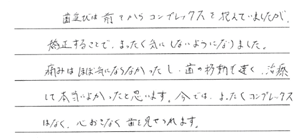 歯並びは前々からコンプレックスを抱えていましたが、
矯正することで、まったく気にしないようになりました。
痛みはほぼ気にならなかったし、歯の移動も速く、治療
して本当によかったと思います。今では、まったくコンプレックス
はなく、心おきなく歯を見せられます。